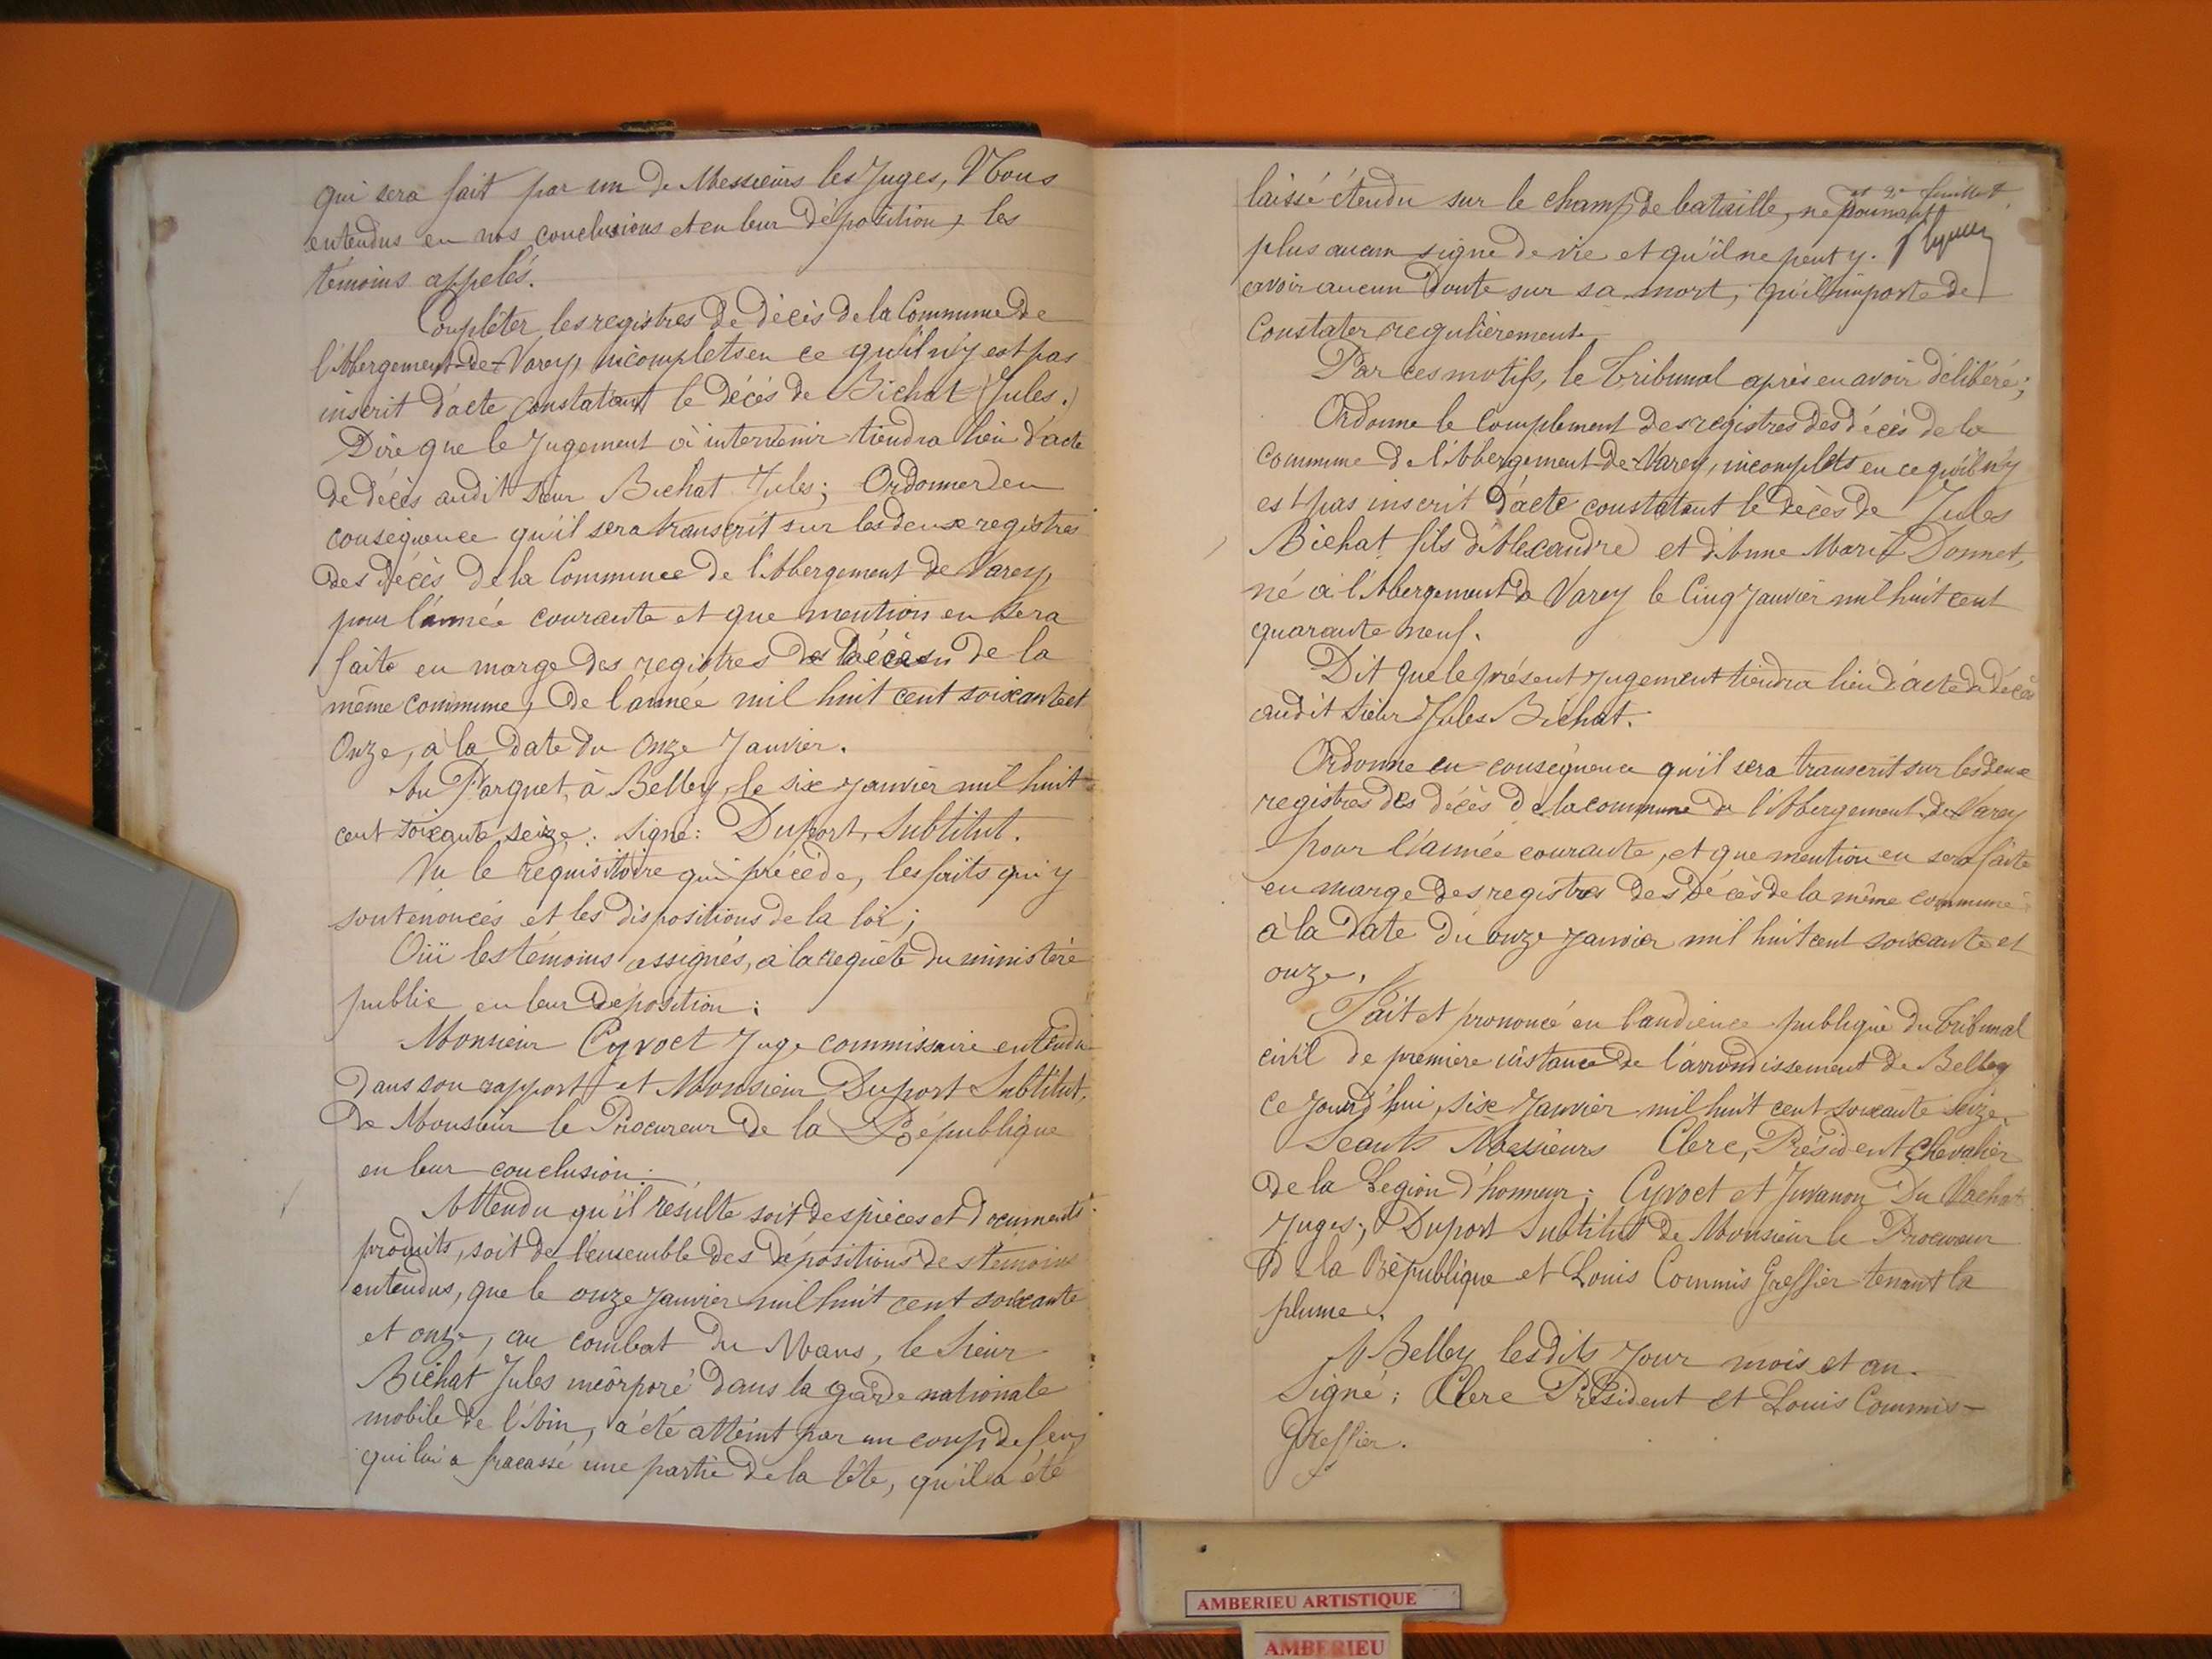 qui sera fait par un de Messieurs les Juges, Nous
entendus en nos conclusions et en leur déposition, les
témoins appelés.
Compléter les registres de décès de la Commune de
l'Abergement-de-Varey, incomplets en ce qu'il n'y est pas
inscrit d'acte constatant le décès de Bichat (Jules.)
Dire que le Jugement à intervenir tiendra lieu d'acte
de décès audit Sieur Bichat Jules; Ordonner en
conséquence qu'il sera transcrit sur les deux registres
des décès de la Commune de l'Abergement de Varey,
pour l'année courante et que mention en sera
faite en marge des registres des décès de la
même commune, de l'année mil huit cent soixante et
Onze, à la date du Onze Janvier.
Au Parquet, à Belley, le six Janvier mil huit
cent soixante seize. Signé: Duport, Substitut.
Vu le réquisitoire qui précède, les faits qui y
sont énoncés et les dispositions de la loi;
Ouï les témoins assignés, à la requête du ministère
public en leur déposition;
Monsieur Cyvoct Juge commissaire entendu
dans son rapport et Monsieur Duport Substitut,
de Monsieur le Procureur de la République
en leur conclusion.
Attendu qu'il résulte soit des pièces et documents
produits, soit de l'ensemble des dépositions des témoins
entendus, que le onze Janvier mil huit cent soixante
et onze, au combat du Mans, le Sieur
Bichat Jules incorporé dans la garde nationale
mobile de l'Ain, a été atteint par un coup de feu
qui lui a fracassé une partie de la tête, qu'il a été
et 2e feuillet.
laissé étendu sur le champ de bataille, ne donnant
plus aucun signe de vie et qu'il ne peut y
avoir aucun doute sur sa mort, qu'il importe de
Constater regulièrement.
Par ces motifs, le Tribunal après en avoir délibéré;
Ordonne le complement des registres des décès de la
commune de l'Abergement-de-Varey, incomplets en ce qu'il n'y
est pas inscrit d'acte constatant le décès de Jules
Bichat fils d'Alexandre et d'Anne Marie Donnet,
né à l'Abergement de Varey le Cinq Janvier mil huit cent
quarante neuf.
Dit que le présent Jugement tiendra lieu d'acte de décès
audit Sieur Jules Bichat.
Ordonne en conséquence qu'il sera transcrit sur les deux
registres des décès de la commune de l'Abergement-de-Varey
pour l'année courante, et que mention en sera faite
en marge des registres des décès de la même commune
à la date du onze Janvier mil huit cent soixante et
onze.
Fait et prononcé en l'audience publique du Tribunal
civil de première instance de l'arrondissement de Belley
ce jourd'hui, six Janvier mil huit cent soixante seize.
Séants Messieurs Clerc, Président Chevalier
de la Legion d'honneur; Cyvoct et Juvanon Du Vachat
Juges; Duport Substitut de Monsieur le Procureur
de la République et Louis Commis Greffier tenant la
plume.
A Belley les dits Jour mois et an.
Signé: Clerc Président et Louis Commis-
Greffier.
AMBERIEU ARTISTIQUE
AMBERIEU